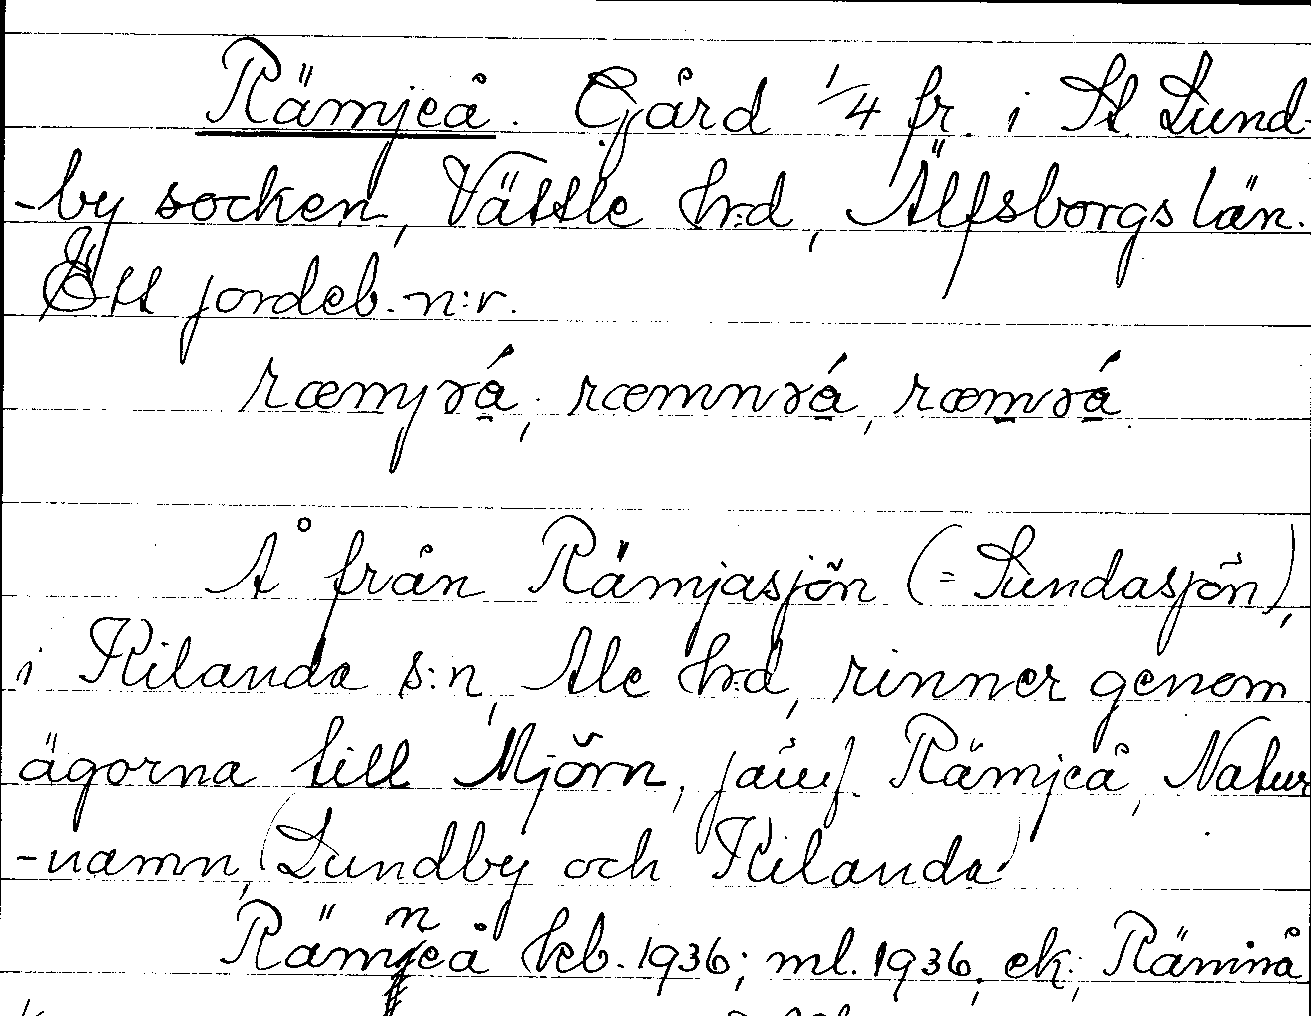 Rämjeå. Gård 1/4 fr. i St Lund-
-by socken, Vättle h:d, Älfsborgs län.
Ett jordeb. n:r.
ræmjrá, ræmnrá, ræmrá.
Å från Rämjasjön (= Sundasjön),
i Kilanda s:n, Ale h:d, rinner genom
ägorna till Mjörn, jämf. Rämjeå, Natur
-namn, (Lundby och Kilanda)
Rämneå kb. 1936; ml. 1936, ek; Rämnå